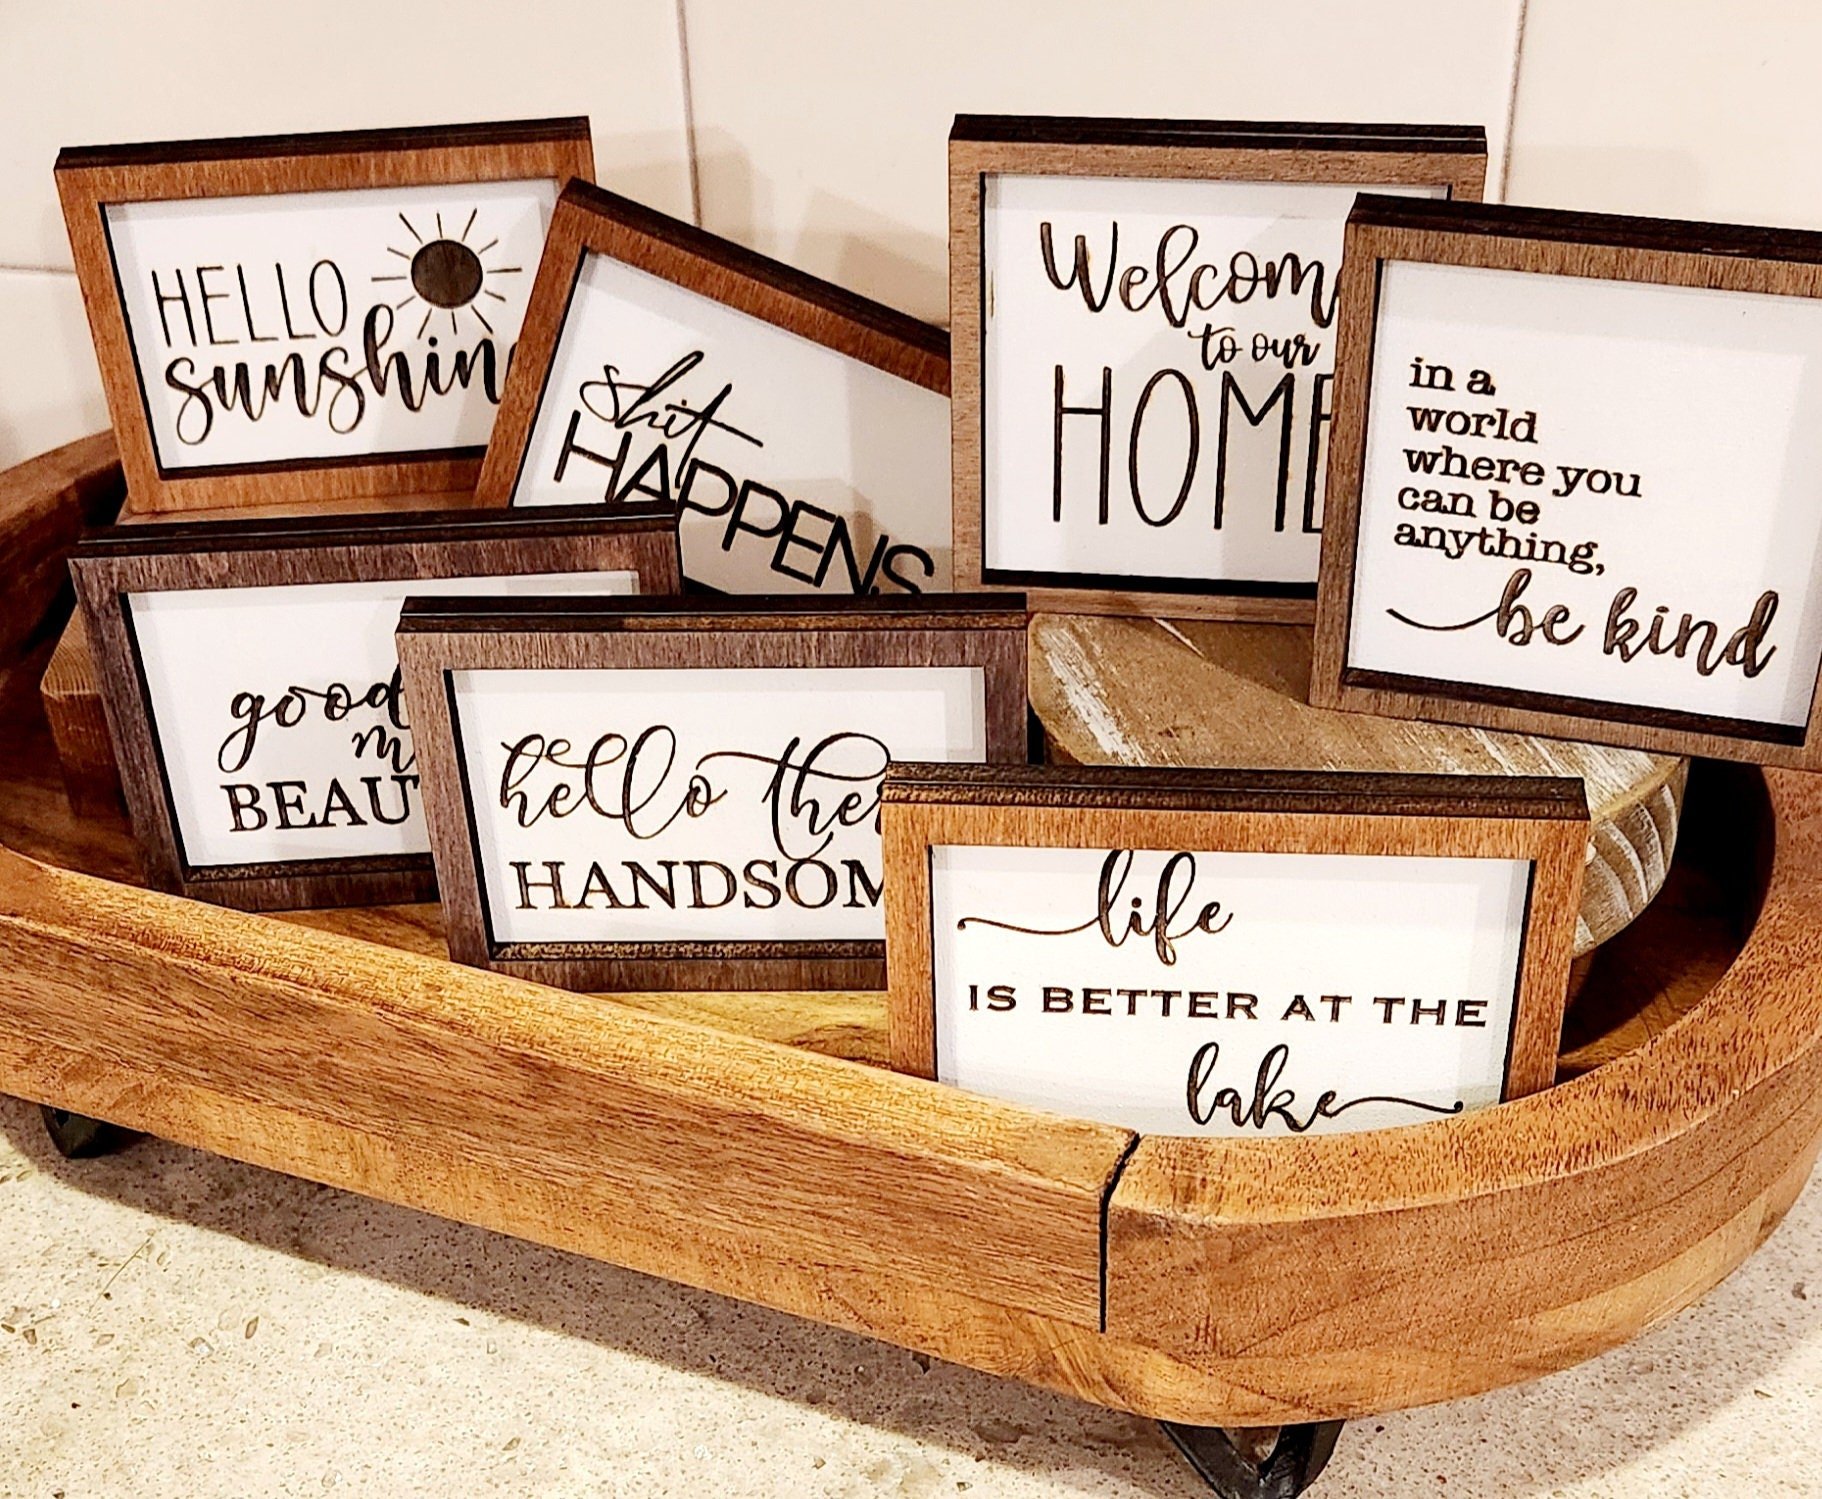 HELLO
sunshin
shit
HAPPENS
Welcom
to our
HOME
in a
world
where you
can be
anything,
be kind
good
m
BEAUT
hello ther
HANDSOM
life
IS BETTER AT THE
lake